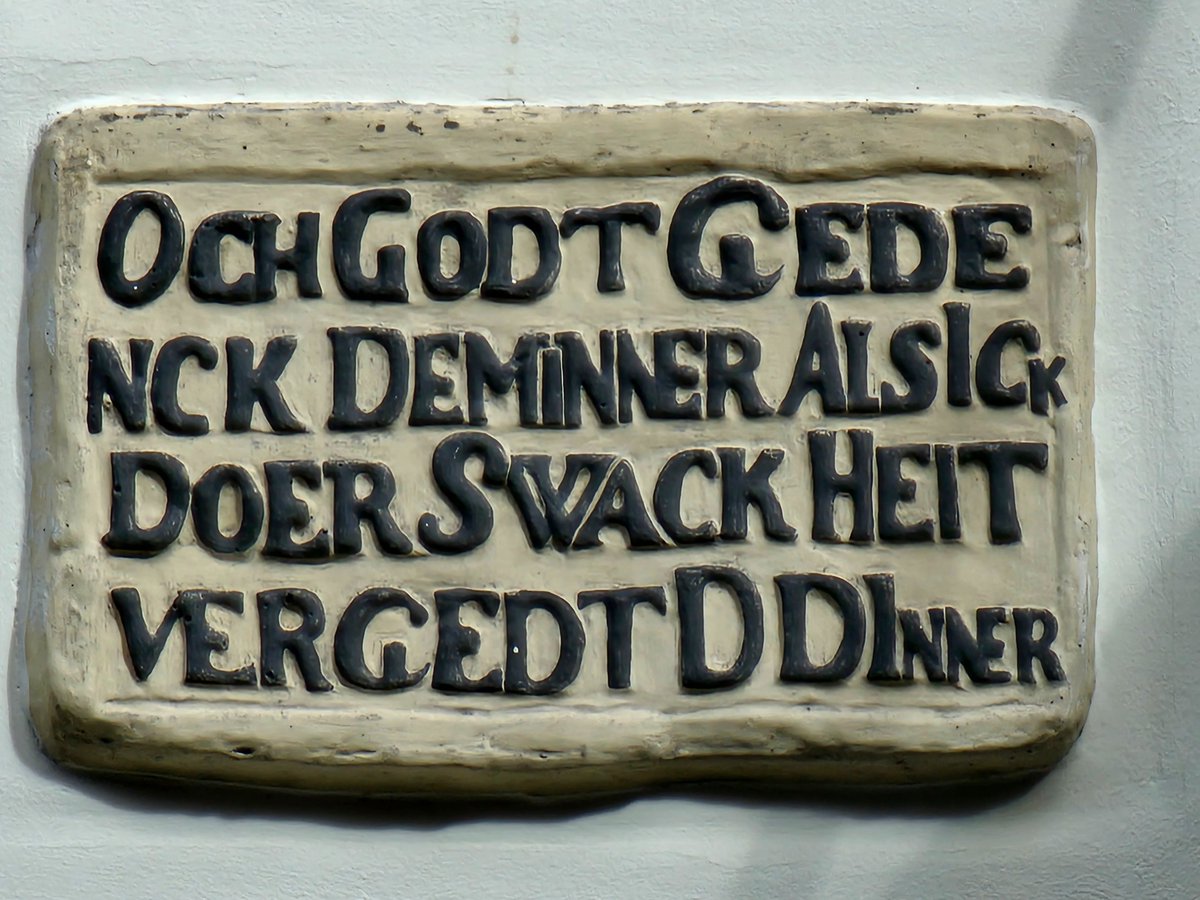 OCH GODT GEDE
NCK DEMIINNER ALS ICK
DOER SWACKHEIT
VERGEDT D DINNER